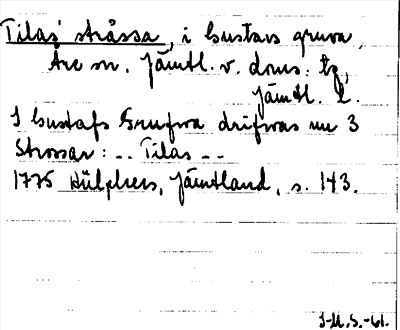 Tilas' stråssa, i Gustavs gruva,
Åre sn. Jämtl. v. doms. tg,
Jämtl. l.
I Gustafs Grufwa drifwas nu 3
Strossar: -- Tilas --
1775 Hülphers, Jämtland, s. 143.
J-M.S.-61.